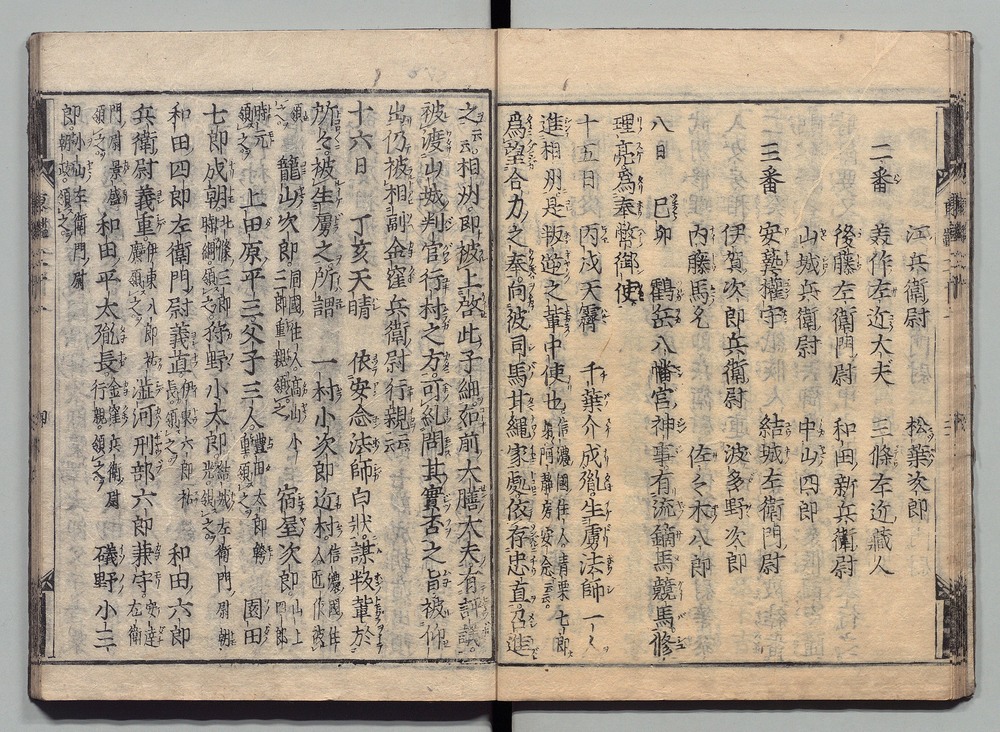 江兵衛尉　松葉次郎
二番　美作左近大夫　三條左近藏人
後藤左衛門尉　和田新兵衛尉
山城兵衛尉　中山四郎
三番　安藝權守　結城左衛門尉
伊賀次郎兵衛尉　波多野次郎
内藤馬允　佐々木八郎
八日　己卯　鶴岳八幡宮神事有流鏑馬競馬修
理亮爲奉幣御使
十五日　丙戌天霽　千葉介成胤生虜法師一人
進相州是叛逆之輩中使也信濃國住人青栗七郎弟阿靜房安念云云
爲望合力之奉向彼司馬甘繩家處依存忠直召進
之云云相州即被上啓此子細如前大膳大夫有評議
被渡山城判官行村之方可糺問其實否之旨被仰
出仍被相副金窪兵衛尉行親云云
十六日　丁亥天晴　依安念法師白狀謀叛輩於
所々被生虜之所謂　一村小次郎近村信濃國住人匠作被
預之　籠山次郎同國住人高山小三郎重親預之　宿屋次郎山上四郎
時元預之　上田原平三父子三人豐田太郎幹重預之　園田
七郎成朝上條三郎時綱預之　狩野小太郎結城左衛門尉朝光預之
和田四郎左衛門尉義直伊東六郎祐長預之　和田六郎
兵衛尉義重伊東八郎祐廣預之　澁河刑部六郎兼守安達左衛
門尉景盛預之　和田平太胤長金窪兵衛尉行親預之　礒野小三
郎小山左衛門尉朝政預之